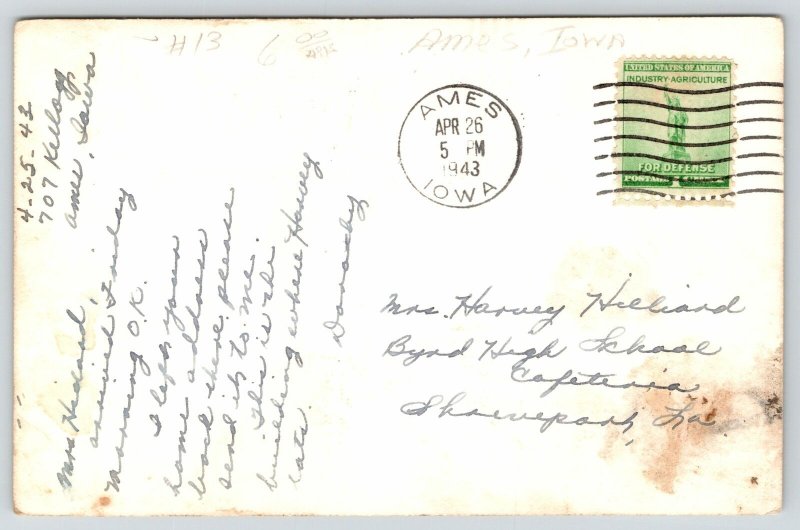 #13
6.00
Ames, Iowa
4-25-43
707 Kellogg
Ames, Iowa
Mrs Hilliard,
arrived Friday
morning O.K.
I left your
home address
back there please
send it to me.
This is the
building where Harvey
eats.
Dorothy
AMES
APR 26
5 PM
1943
IOWA
UNITED STATES OF AMERICA
INDUSTRY AGRICULTURE
FOR DEFENSE
Mrs. Harvey Hilliard
Byrd High School
Cafeteria
Shreveport, La